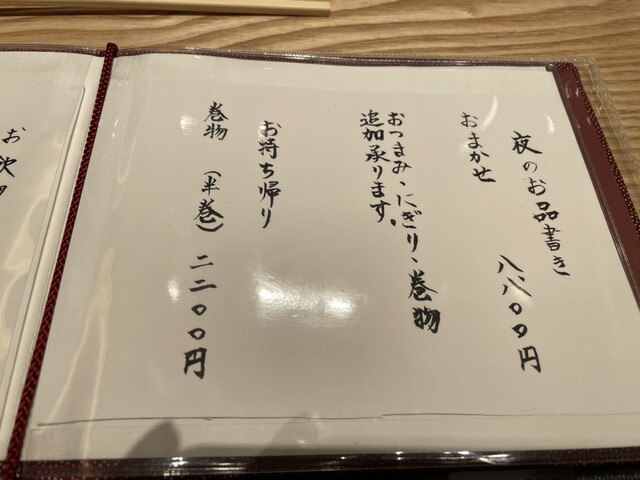 夜のお品書き
おまかせ 八八〇〇円
おつまみ、にぎり、巻物
追加承ります。
お持ち帰り
巻物 (半巻) 二二〇〇円